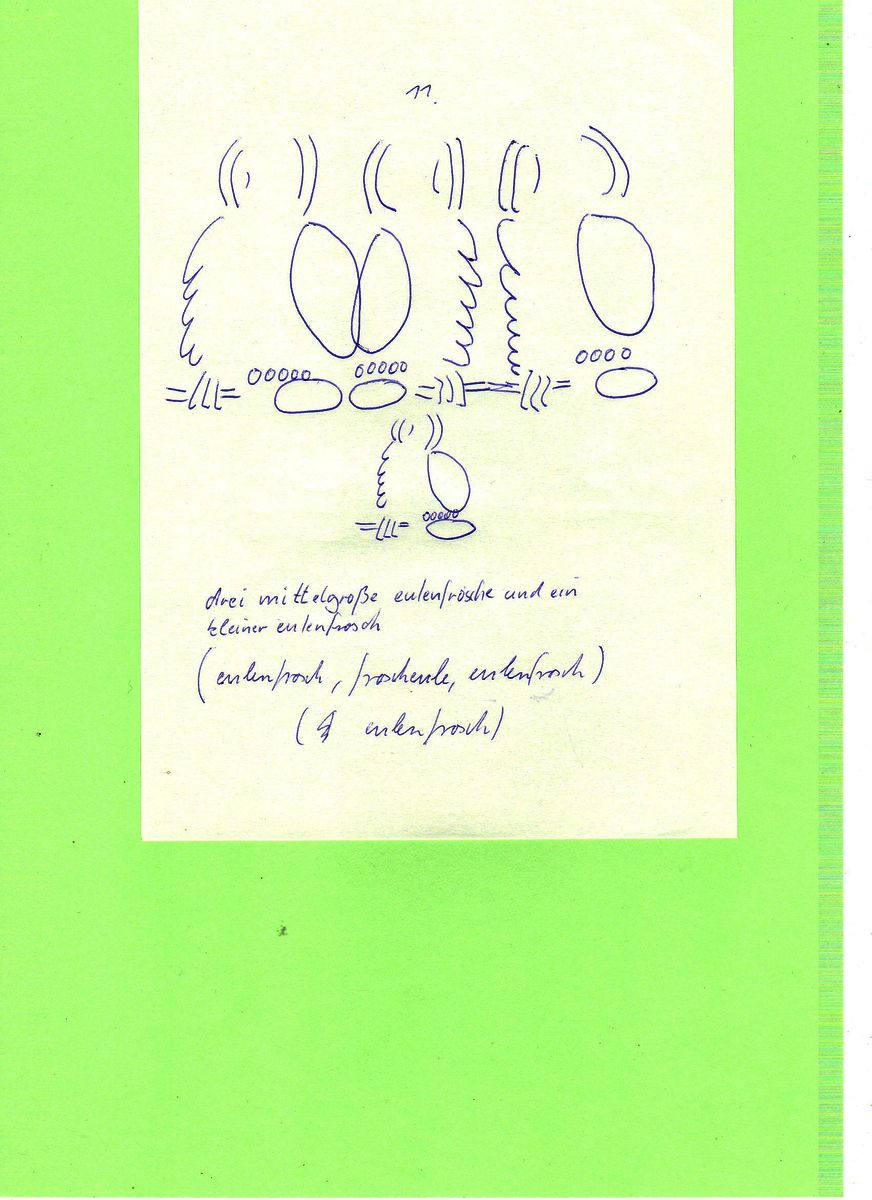 11.
drei mittelgroße eulenfrösche und ein
kleiner eulenfrosch
(eulenfrosch, froscheule, eulenfrosch)
( eulenfrosch)